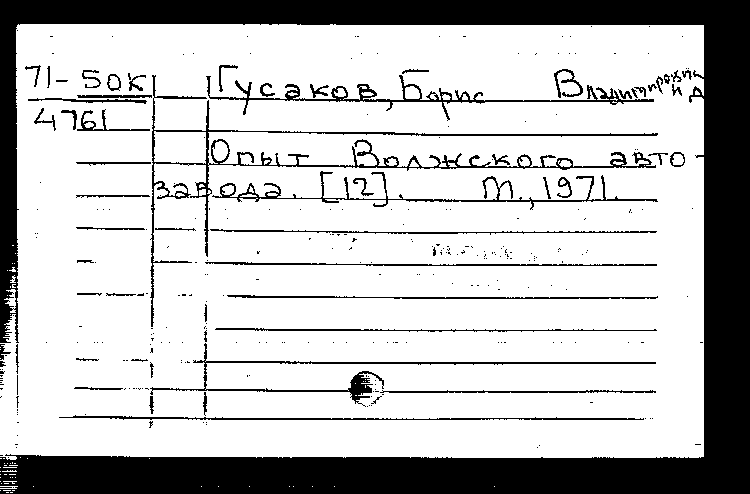 71-50к Гусаков, Борис Владимирович
4761 и д
Опыт Волжского авто-
завода. [12]. М., 1971.